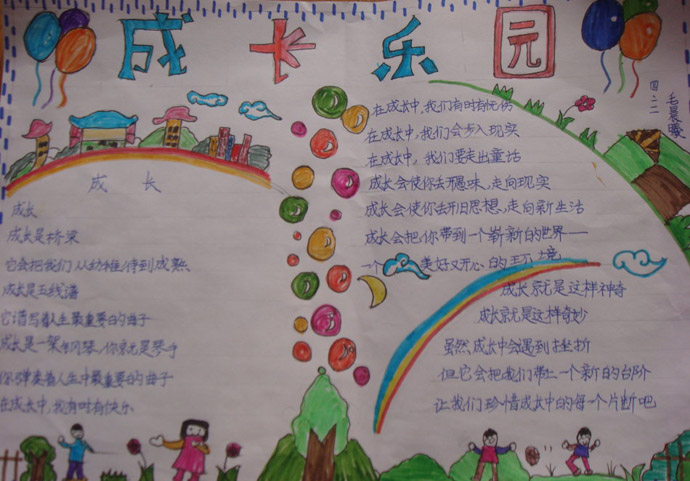 成长乐园
四.二
毛晨曦
成长
成长
成长是桥梁
它会把我们从幼稚传到成熟
成长是五线谱
它谱写着人生最重要的母子
成长是一架钢琴,你就是琴手
你弹奏着人生中最重要的母子
在成长中,我有时有快乐
在成长中,我们有时有忧伤
在成长中,我们会步入现实
在成长中,我们要走出童话
成长会使你去开愚昧,走向现实
成长会使你去开旧思想,走向新生活
成长会把你带到一个崭新的世界——
一个美好又开心的环境
成长就是这样神奇
成长就是这样奇妙
虽然成长中会遇到挫折
但它会把我们带上一个新的台阶
让我们珍惜成长中的每一个片断吧